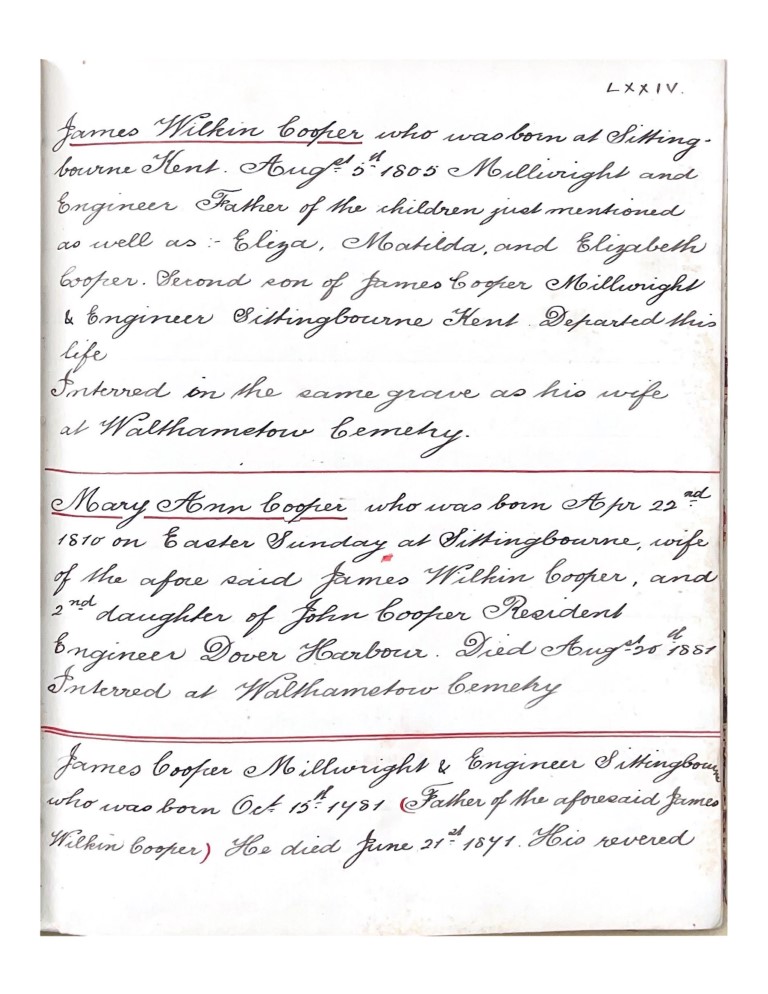 LXXIV.
James Wilkin Cooper who was born at Sitting-
bourne Kent. Augst 5th 1805 Millwright and
Engineer Father of the children just mentioned
as well as :- Eliza, Matilda, and Elizabeth
Cooper. Second son of James Cooper Millwright
& Engineer Sittingbourne Kent. Departed this
life
Interred in the same grave as his wife
at Walthamstow Cemetry.
Mary Ann Cooper who was born Apr 22nd
1810 on Easter Sunday at Sittingbourne, wife
of the afore said James Wilkin Cooper, and
2nd daughter of John Cooper Resident
Engineer Dover Harbour. Died Augst 20th 1881
Interred at Walthamstow Cemetry
James Cooper Millwright & Engineer Sittingbourne
who was born Oct. 15th 1781 (Father of the aforesaid James
Wilkin Cooper) He died June 21st 1871. His revered